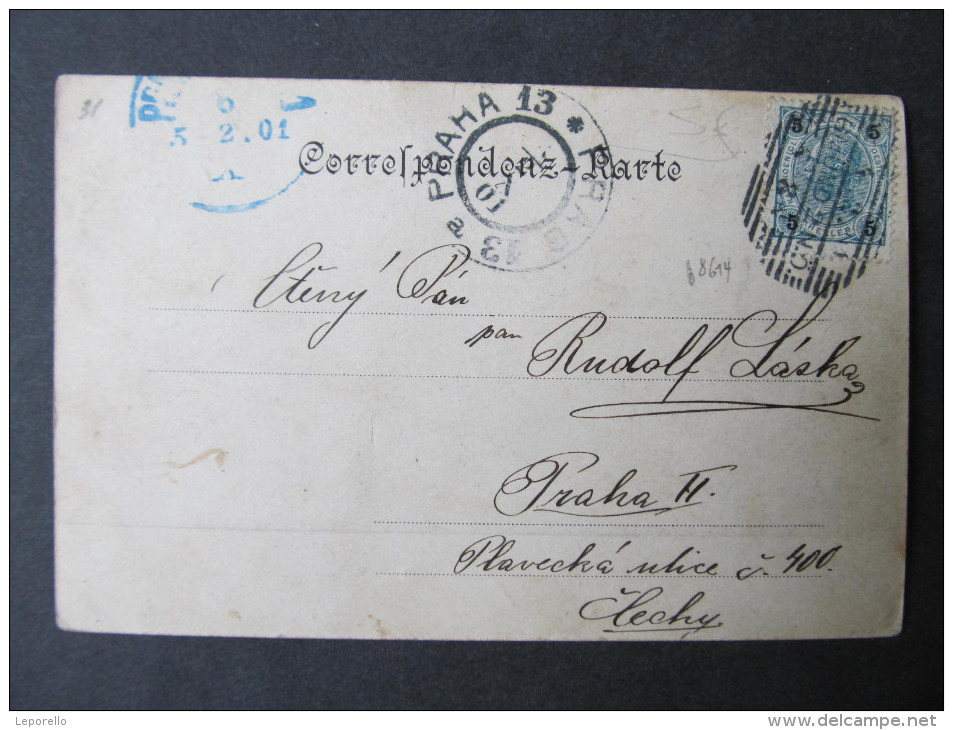 31
5 2.01
PRAHA 13 * PRAG 13 a
5 5
5 HELLER 5
Correspondenz-Karte
8614
Ctěný Pán
pan
Rudolf Láska
Praha II.
Plavecká ulice č. 400.
Čechy
Leporello
www.delcampe.net